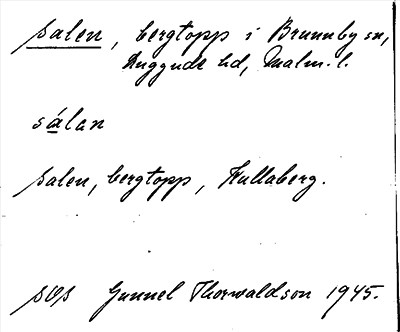 Salen, bergtopp i Brunnby sn,
Luggude hd, Malm. l.
sálan
Salen, bergtopp, Kullaberg.
Gunnel Thorwaldson 1945.